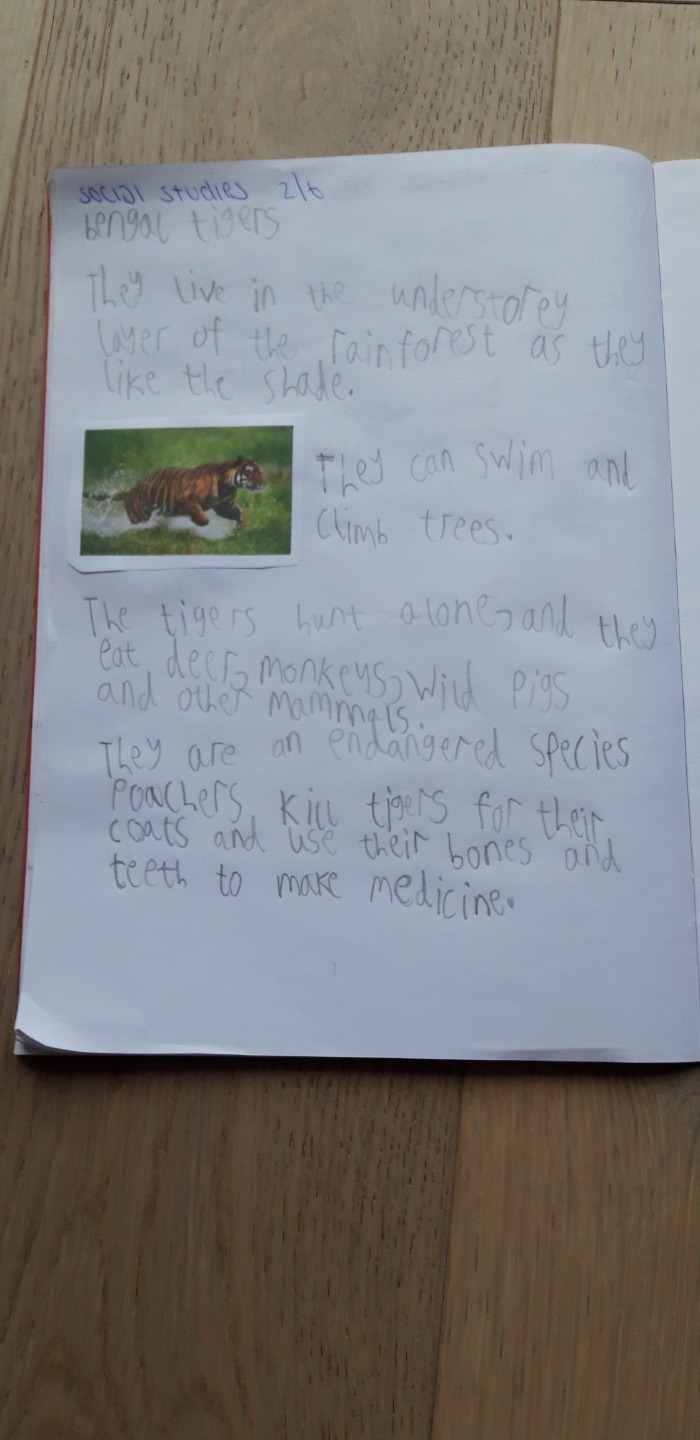 social studies 2/6
bengal tigers
They live in the understorey
layer of the rainforest as they
like the shade.
They can swim and
climb trees.
The tigers hunt alone, and they
eat deer, monkeys, wild pigs
and other mammals.
They are an endangered species
Poachers kill tigers for their
coats and use their bones and
teeth to make medicine.